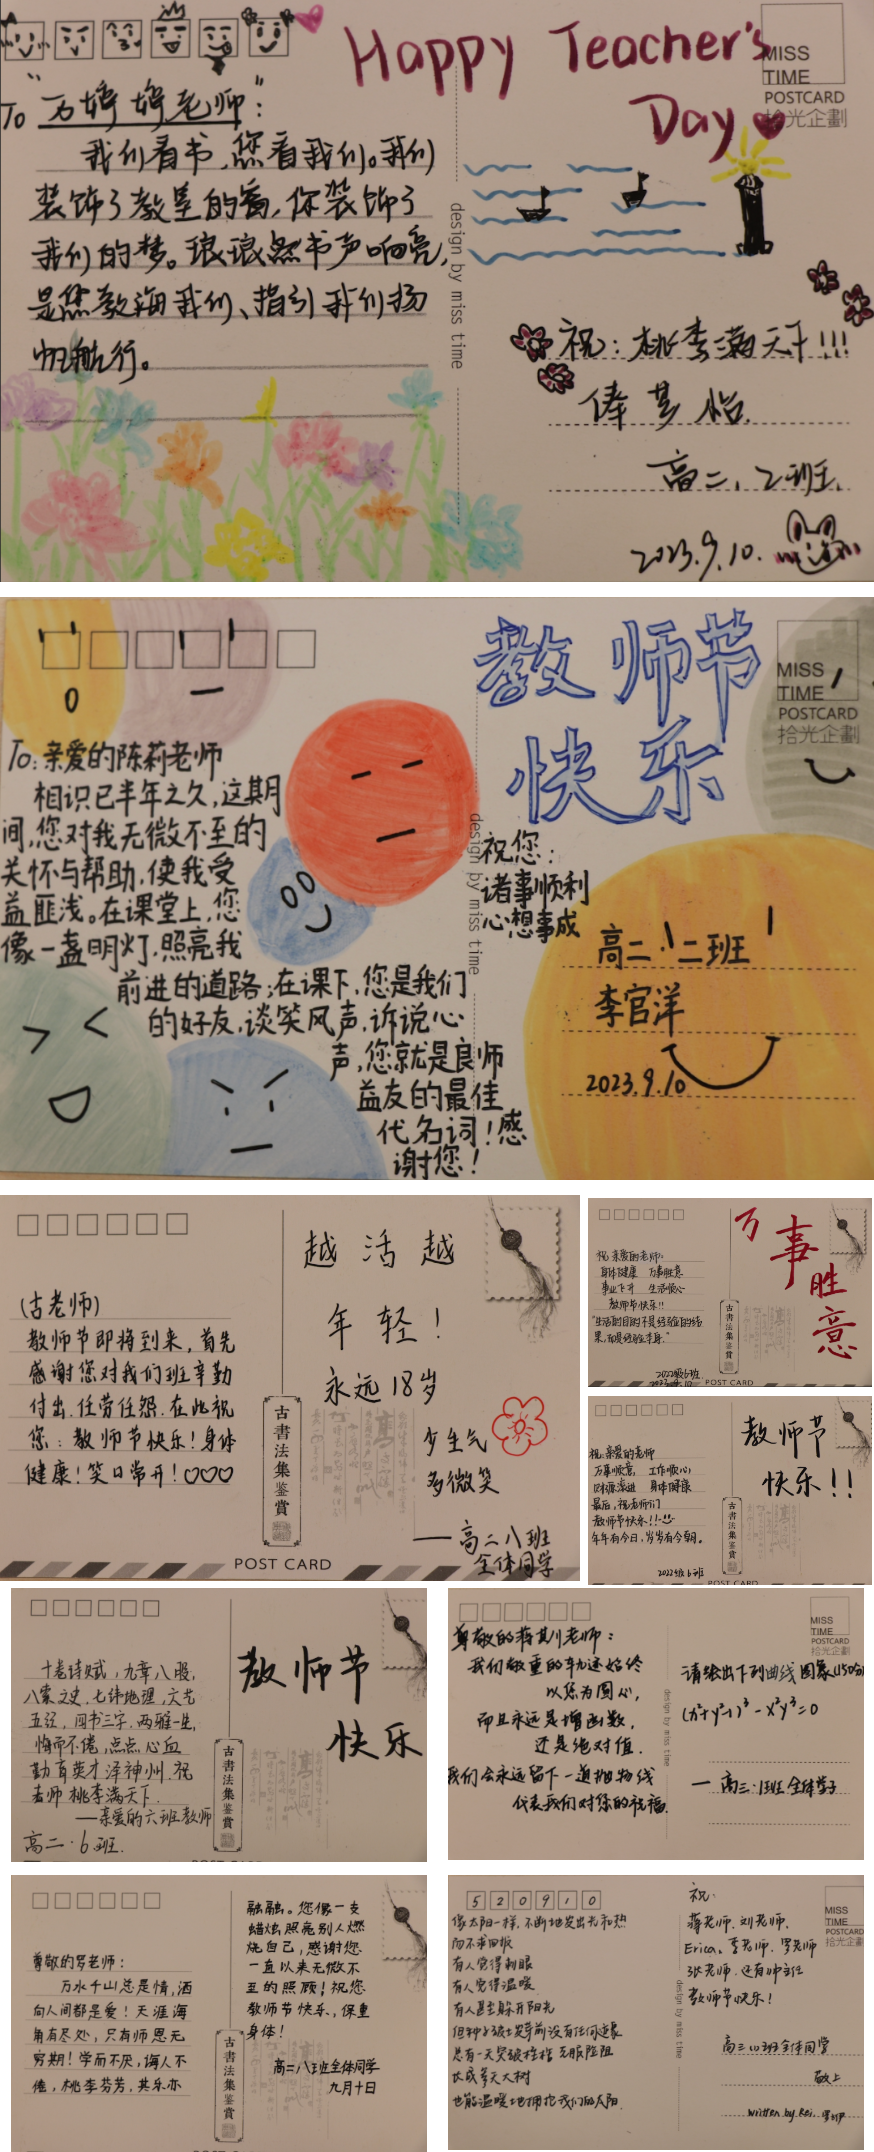 Happy Teacher's
Day
MISS
TIME
POSTCARD
拾光企劃
To "万婷婷老师":
我们看书,您看我们。我们
装饰了教室的窗,你装饰了
我们的梦。琅琅然书声响亮,
是您教诲我们、指引我们扬
帆航行。
design by miss time
祝:桃李满天下!!!
俸梦怡
高二、2班
2023.9.10.
教师节
快乐
MISS
TIME
POSTCARD
拾光企劃
To:亲爱的陈莉老师
相识已半年之久,这期
间,您对我无微不至的
关怀与帮助,使我受
益匪浅。在课堂上,您
像一盏明灯,照亮我
前进的道路;在课下,您是我们
的好友,谈笑风声,诉说心
声,您就是良师
益友的最佳
代名词!感
谢您!
design by miss time
祝您:
诸事顺利
心想事成
高二·二班
李官洋
2023.9.10
(古老师)
教师节即将到来,首先
感谢您对我们班辛勤
付出.任劳任怨.在此祝
您:教师节快乐!身体
健康!笑口常开!♡♡♡
越活越
年轻!
永远18岁
少生气
多微笑
——高二八班
全体同学
古書法集鉴賞
POST CARD
祝亲爱的老师:
身体健康 万事胜意
事业飞升 生活顺心
教师节快乐!!
"生活的目的不是经验的结
果,而是经验本身."
2022级6班
万事胜意
古書法集鉴賞
POST CARD
祝:亲爱的老师
万事顺意, 工作顺心
财源滚进 身体健康
最后,祝老师们
教师节快乐!!
年年有今日,岁岁有今朝。
2022级6班
教师节
快乐!!
古書法集鉴賞
POST CARD
十卷诗赋,九章八股,
八索文史,七纬地理,六艺
五经,四书三字,两雅一生,
悔而不倦,点点心血
勤育英才泽神州.祝
老师桃李满天下.
——亲爱的六班教师
高二·6班.
教师节
快乐
古書法集鉴賞
尊敬的蒋其川老师:
我们敬重的轨迹始终
以您为圆心,
而且永远是增函数,
还是绝对值.
我们会永远留下一道抛物线
代表我们对您的祝福.
design by miss time
MISS
TIME
POSTCARD
拾光企劃
请绘出下列曲线图象(150分)
(x²+y²-1)³-x²y³=0
—高三·1班全体学子
尊敬的罗老师:
万水千山总是情,洒
向人间都是爱!天涯海
角有尽处,只有师恩无
穷期!学而不厌,诲人不
倦,桃李芬芳,其乐亦
融融。您像一支
蜡烛照亮别人燃
烧自己,感谢您
一直以来无微不
至的照顾!祝您
教师节快乐,保重
身体!
高二八班全体同学
九月十日
古書法集鉴賞
520910
像太阳一样,不断地发出光和热
而不求回报
有人觉得刺眼
有人觉得温暖
有人甚至躲开阳光
但种子破土发芽前没有任何迹象
总有一天突破桎梏 克服险阻
长成参天大树
也能温暖地拥抱我们的太阳.
design by miss time
MISS
TIME
POSTCARD
拾光企劃
祝:
蒋老师.刘老师.
Erica、李老师.罗老师
张老师.还有帅主任
教师节快乐!
高三(1)班全体同学
敬上
written by Rei.